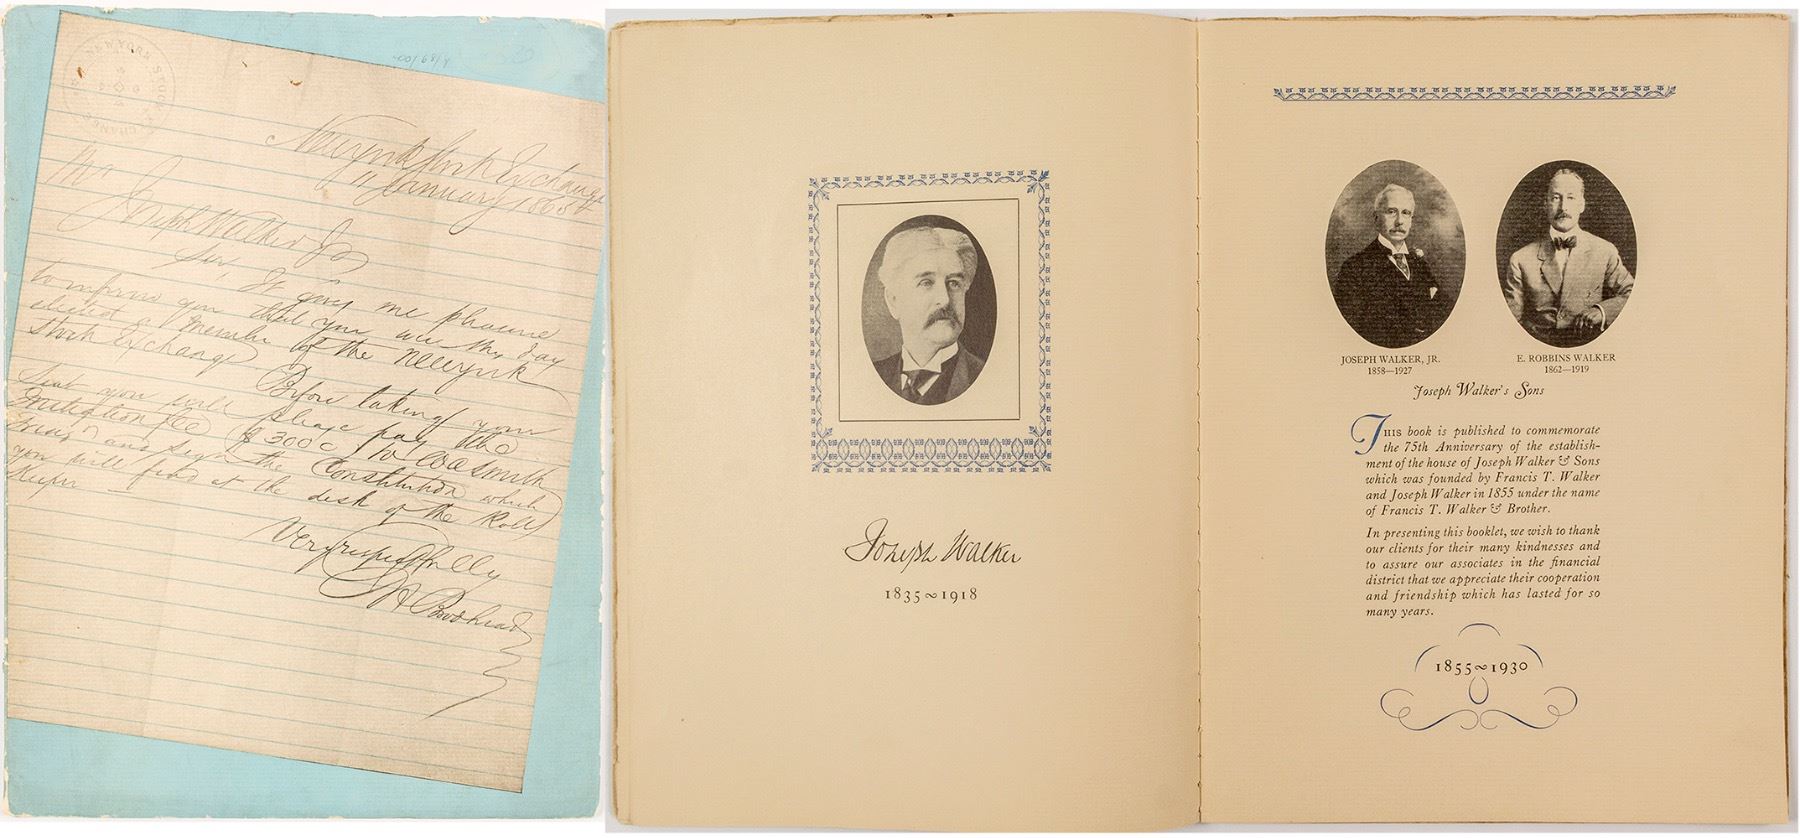 NEW YORK STOCK EXCHANGE
New york Stock Exchange
11 January 1865
Mr Joseph Walker Jr
Sir, It gives me pleasure
to inform you that you were this day
elected a Member of the Newyork
Stock Exchange
Before taking your
Seat you will please pay the
Initiation fee
and sign the Constitution which
you will find at the desk of the Roll
Keeper
Very respectfully
Joseph Walker
1835~1918
JOSEPH WALKER, JR.
1858—1927
E. ROBBINS WALKER
1862—1919
Joseph Walker's Sons
THIS book is published to commemorate
the 75th Anniversary of the establish-
ment of the house of Joseph Walker & Sons
which was founded by Francis T. Walker
and Joseph Walker in 1855 under the name
of Francis T. Walker & Brother.
In presenting this booklet, we wish to thank
our clients for their many kindnesses and
to assure our associates in the financial
district that we appreciate their cooperation
and friendship which has lasted for so
many years.
1855~1930